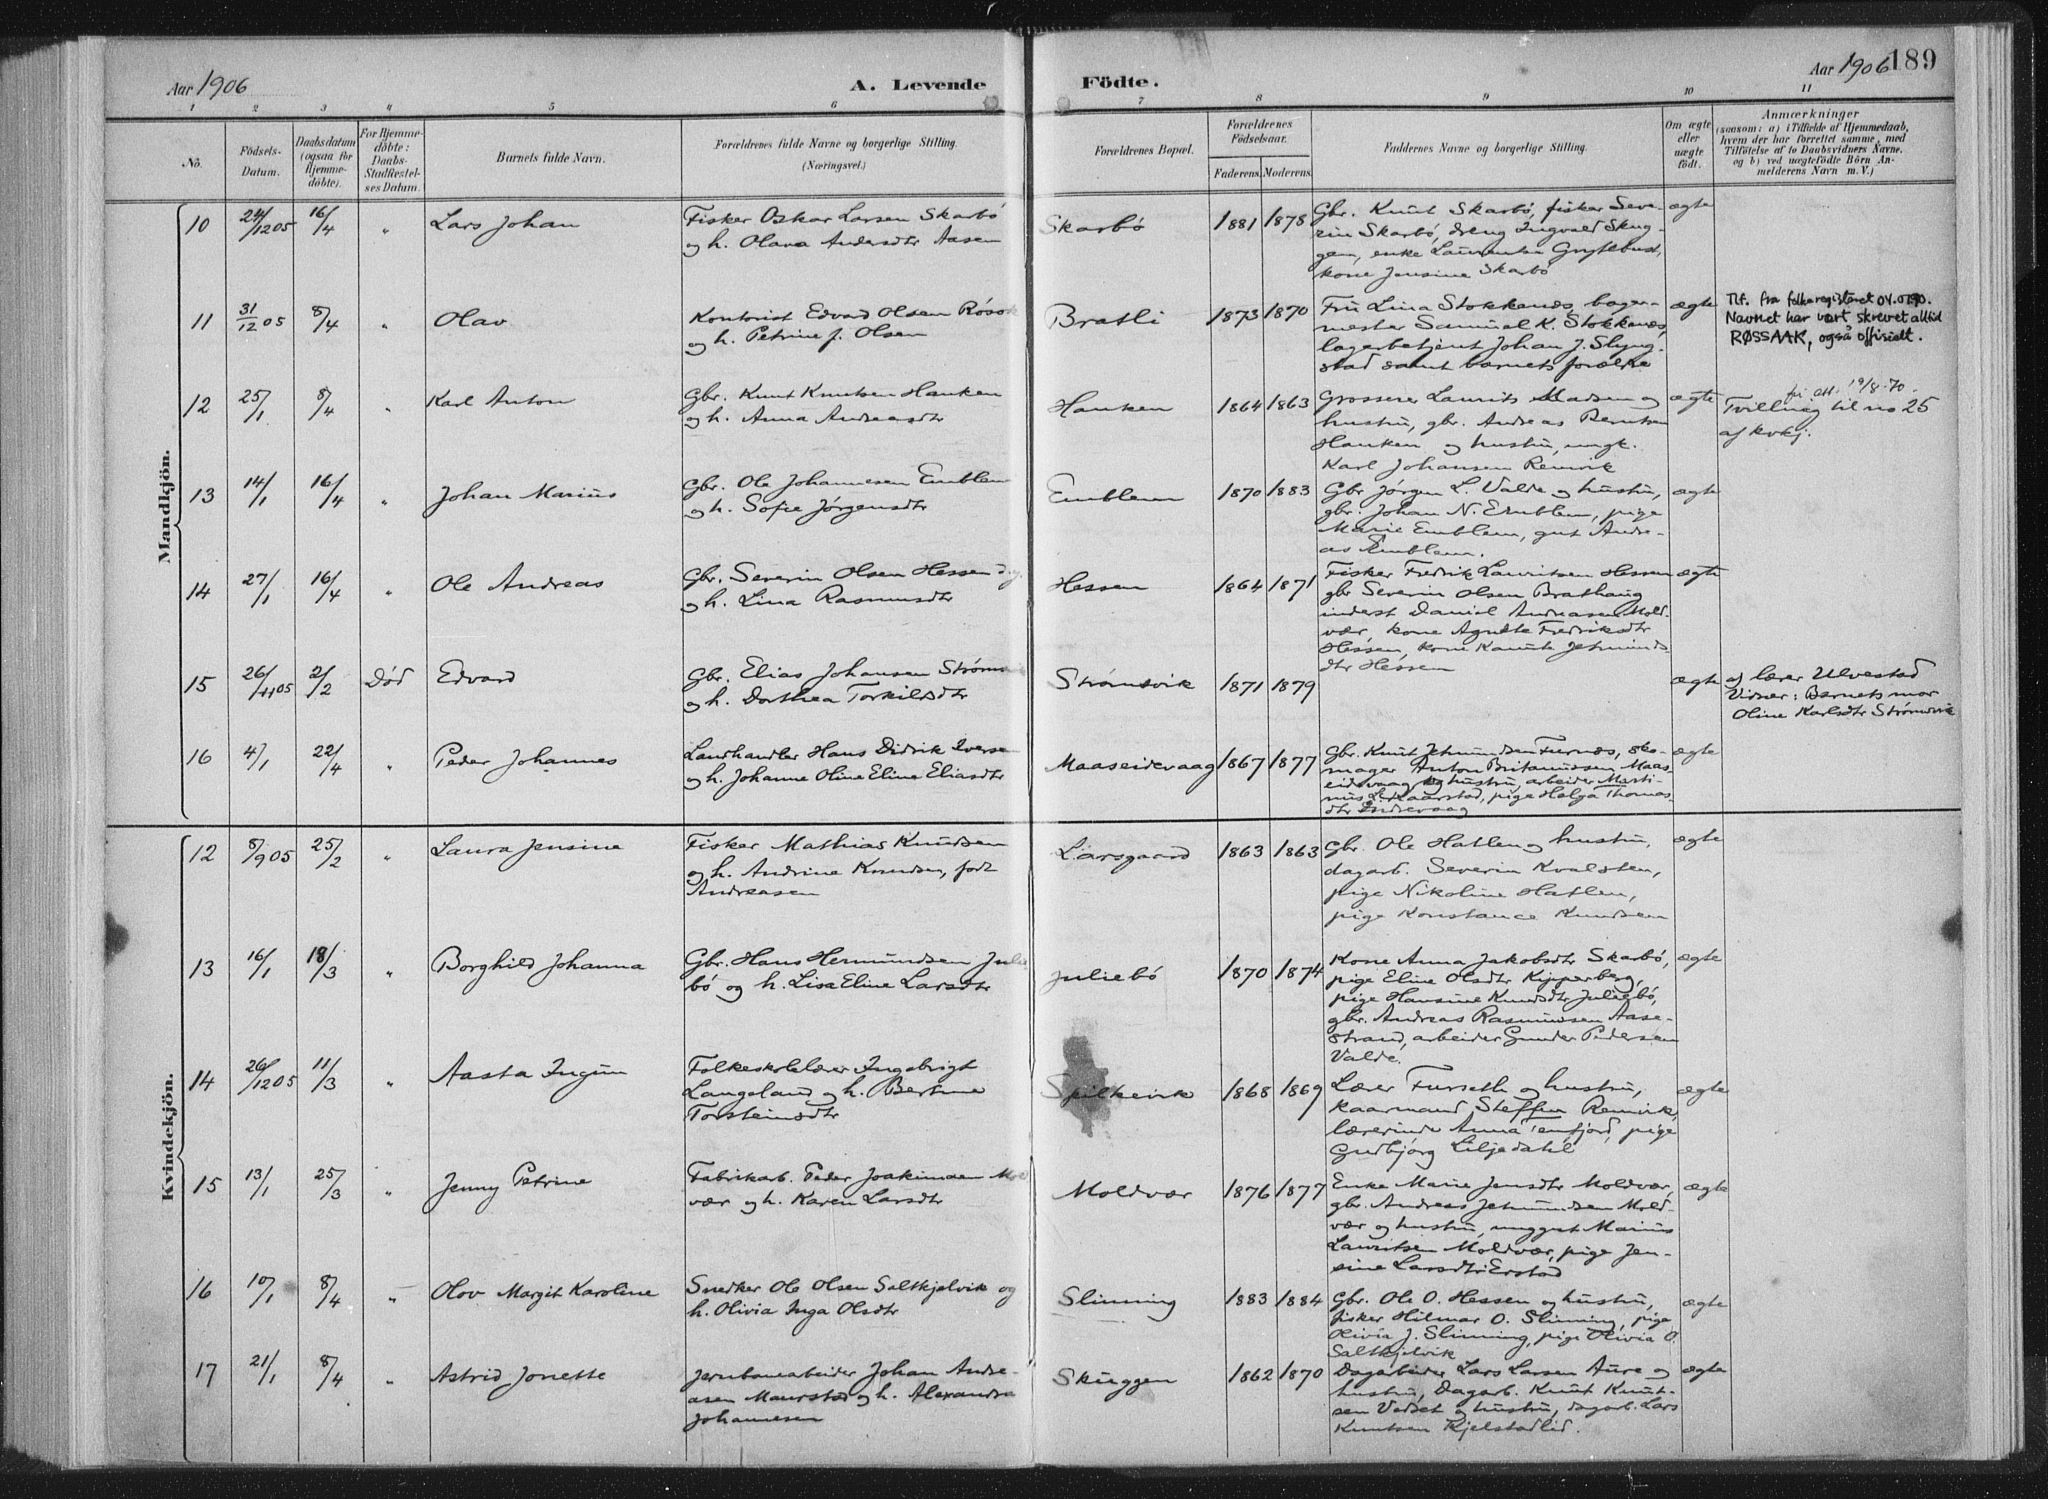 Aar 1906
A. Levende Födte.
Aar 1906 189
1 2 3 4 5 6 7 8 9 10 11
No.
Födsels-Datum.
Daabsdatum (ogsaa for Hjemmedöbte).
For Hjemmedöbte: Daabs-Stadfæstelses Datum.
Barnets fulde Navn.
Forældrenes fulde Navne og borgerlige Stilling. (Næringsvei.)
Forældrenes Bopæl.
Forældrenes Födselsaar.
Faderens. Moderens.
Faddernes Navne og borgerlige Stilling.
Om ægte eller uægte födt.
Anmærkninger
(saasom: a) i Tilfælde af Hjemmedaab,
hvem der har forrettet samme, med
Tilföielse af to Daabsvidners Navne.
og b) ved uægtefödte Börn Anmelderens Navn m. V.)
Mandkjön.
10 24/12 05 16/4 " Lars Johan
Fisker Oskar Larsen Skarbö
og h. Olava Andersdtr Aasen
Skarbö 1881 1878
Gbr. Knut Skarbö, fisker Seve-
rin Skarbö, dreng Ingvald Skug-
gen, enke Laurentse Grytebust,
kone Jensine Skarbö
ægte
11 31/12 05 8/4 " Olav
Kontorist Edvard Olsen Røsok
og h. Petrine J. Olsen
Bratli 1873 1870
Fru Lina Stokkenes, bager-
mester Samuel K. Stokkenes,
lagerbetjent Johan J. Slyng-
stad samt barnets forældre
ægte
Tlf. fra folkeregisteret 04.0790.
Navnet har vært skrevet alltid
RØSSAAK, også offisielt.
12 25/1 8/4 " Karl Anton
Gbr. Knut Knutsen Hanken
og h. Anna Andreasdtr
Hanken 1864 1863
Grosserer Laurits Madsen og
hustru, gbr. Andreas Berntsen
Hanken og hustru, ungk.
Karl Johansen Remvik
ægte
før att. 19/8-70.
Tvilling til no 25
af kvkj.
13 14/1 16/4 " Johan Marius
Gbr. Ole Johannesen Emblem
og h. Sofie Jörgensdtr
Emblem 1870 1883
Gbr Jörgen L. Valde og hustru,
gbr. Johan N. Emblem, pige
Marie Emblem, gut Andre-
as Emblem.
ægte
14 27/1 16/4 " Ole Andreas
Gbr. Severin Olsen Hessen
og h. Lina Rasmusdtr
Hessen 1864 1871
Fisker Fredrik Lauritsen Hessen
gbr Severin Olsen Brathaug
inderst Daniel Andreasen Mold-
vær, kone Agnethe Fredriksdtr
Hessen, kone Kanute Jetmunds
dtr Hessen
ægte
15 26/11 05 2/2 Död Edvard
Gbr. Elias Johansen Strömsvik
og h. Dorthea Torkildsdtr
Strömsvik 1871 1879
ægte
af lærer Ulvestad
Vidner: Barnets mor
Oline Karlsdtr Strömsvik
16 4/1 22/4 " Peder Johannes
Landhandler Hans Didrik Iversen
og h. Johanne Oline Eline Eliasdtr
Maaseidevaag 1867 1877
Gbr. Knut Jetmundsen Furnes, sko-
mager Anton Britanussen Maas-
eidevaag og hustru, arbeider Marti-
nus L. Kaarstad, pige Helga Thomas-
dtr Indrevaag
ægte
Kvindekjön.
12 8/9 05 25/2 " Laura Jensine
Fisker Mathias Knudsen
og h. Andrine Knudsen, födt
Andreasen
Larsgaard 1863 1863
Gbr. Ole Hatlen og hustru,
dagarb. Severin Kvalsten,
pige Nikoline Hatlen,
pige Konstance Knudsen
ægte
13 16/1 18/3 " Borghild Johanna
Gbr. Hans Hermundsen Julie
bö og h. Lisa Eline Larsdtr
Juliebö 1870 1874
Kone Anna Jakobsdtr Skarbö,
pige Eline Olsdtr Kipperberg,
pige Hansine Knudsdtr Juliebö,
gbr. Andreas Rasmussen Aase-
strand, arbeider Gunder Pedersen
Valde.
ægte
14 26/12 05 11/3 " Aasta Ingun
Folkeskolelærer Ingebrigt
Langeland og h. Bertine
Torsteinsdtr
Spilkevik 1868 1869
Lærer Furseth og hustru,
kaarmand Steffen Remvik,
lærerinde Anna enfjord, pige
Gudbjörg Liljedahl
ægte
15 13/1 25/3 " Jenny Petrine
Fabrikarb. Peder Joakimsen Mold
vær og h. Karen Larsdtr
Moldvær 1876 1877
Enke Marie Jensdtr Moldvær,
gbr. Andreas Jetmundsen Mold-
vær og hustru, unggut Marius
Lauritsen Moldvær, pige Jen-
sine Larsdtr Erstad
ægte
16 10/1 8/4 " Olav Margit Karoline
Snedker Ole Olsen Saltkjelvik og
h. Olivia Inga Olsdtr
Slinning 1883 1884
Gbr. Ole O. Hessen og hustru,
fisker Hilmar O. Slinning, pige
Olivia J. Slinning, pige Olivia O.
Saltkjelvik
ægte
17 21/1 8/4 " Astrid Jonette
Jernbanearbeider Johan Andre-
asen Maurstad og h. Alexandra
Johannesen
Skuggen 1862 1870
Dagarbeider Lars Larsen Aure og
hustru, Dagarb. Knut Knut-
sen Vedset og hustru, dagarb. Lars
Knutsen Kjelstadlid.
ægte